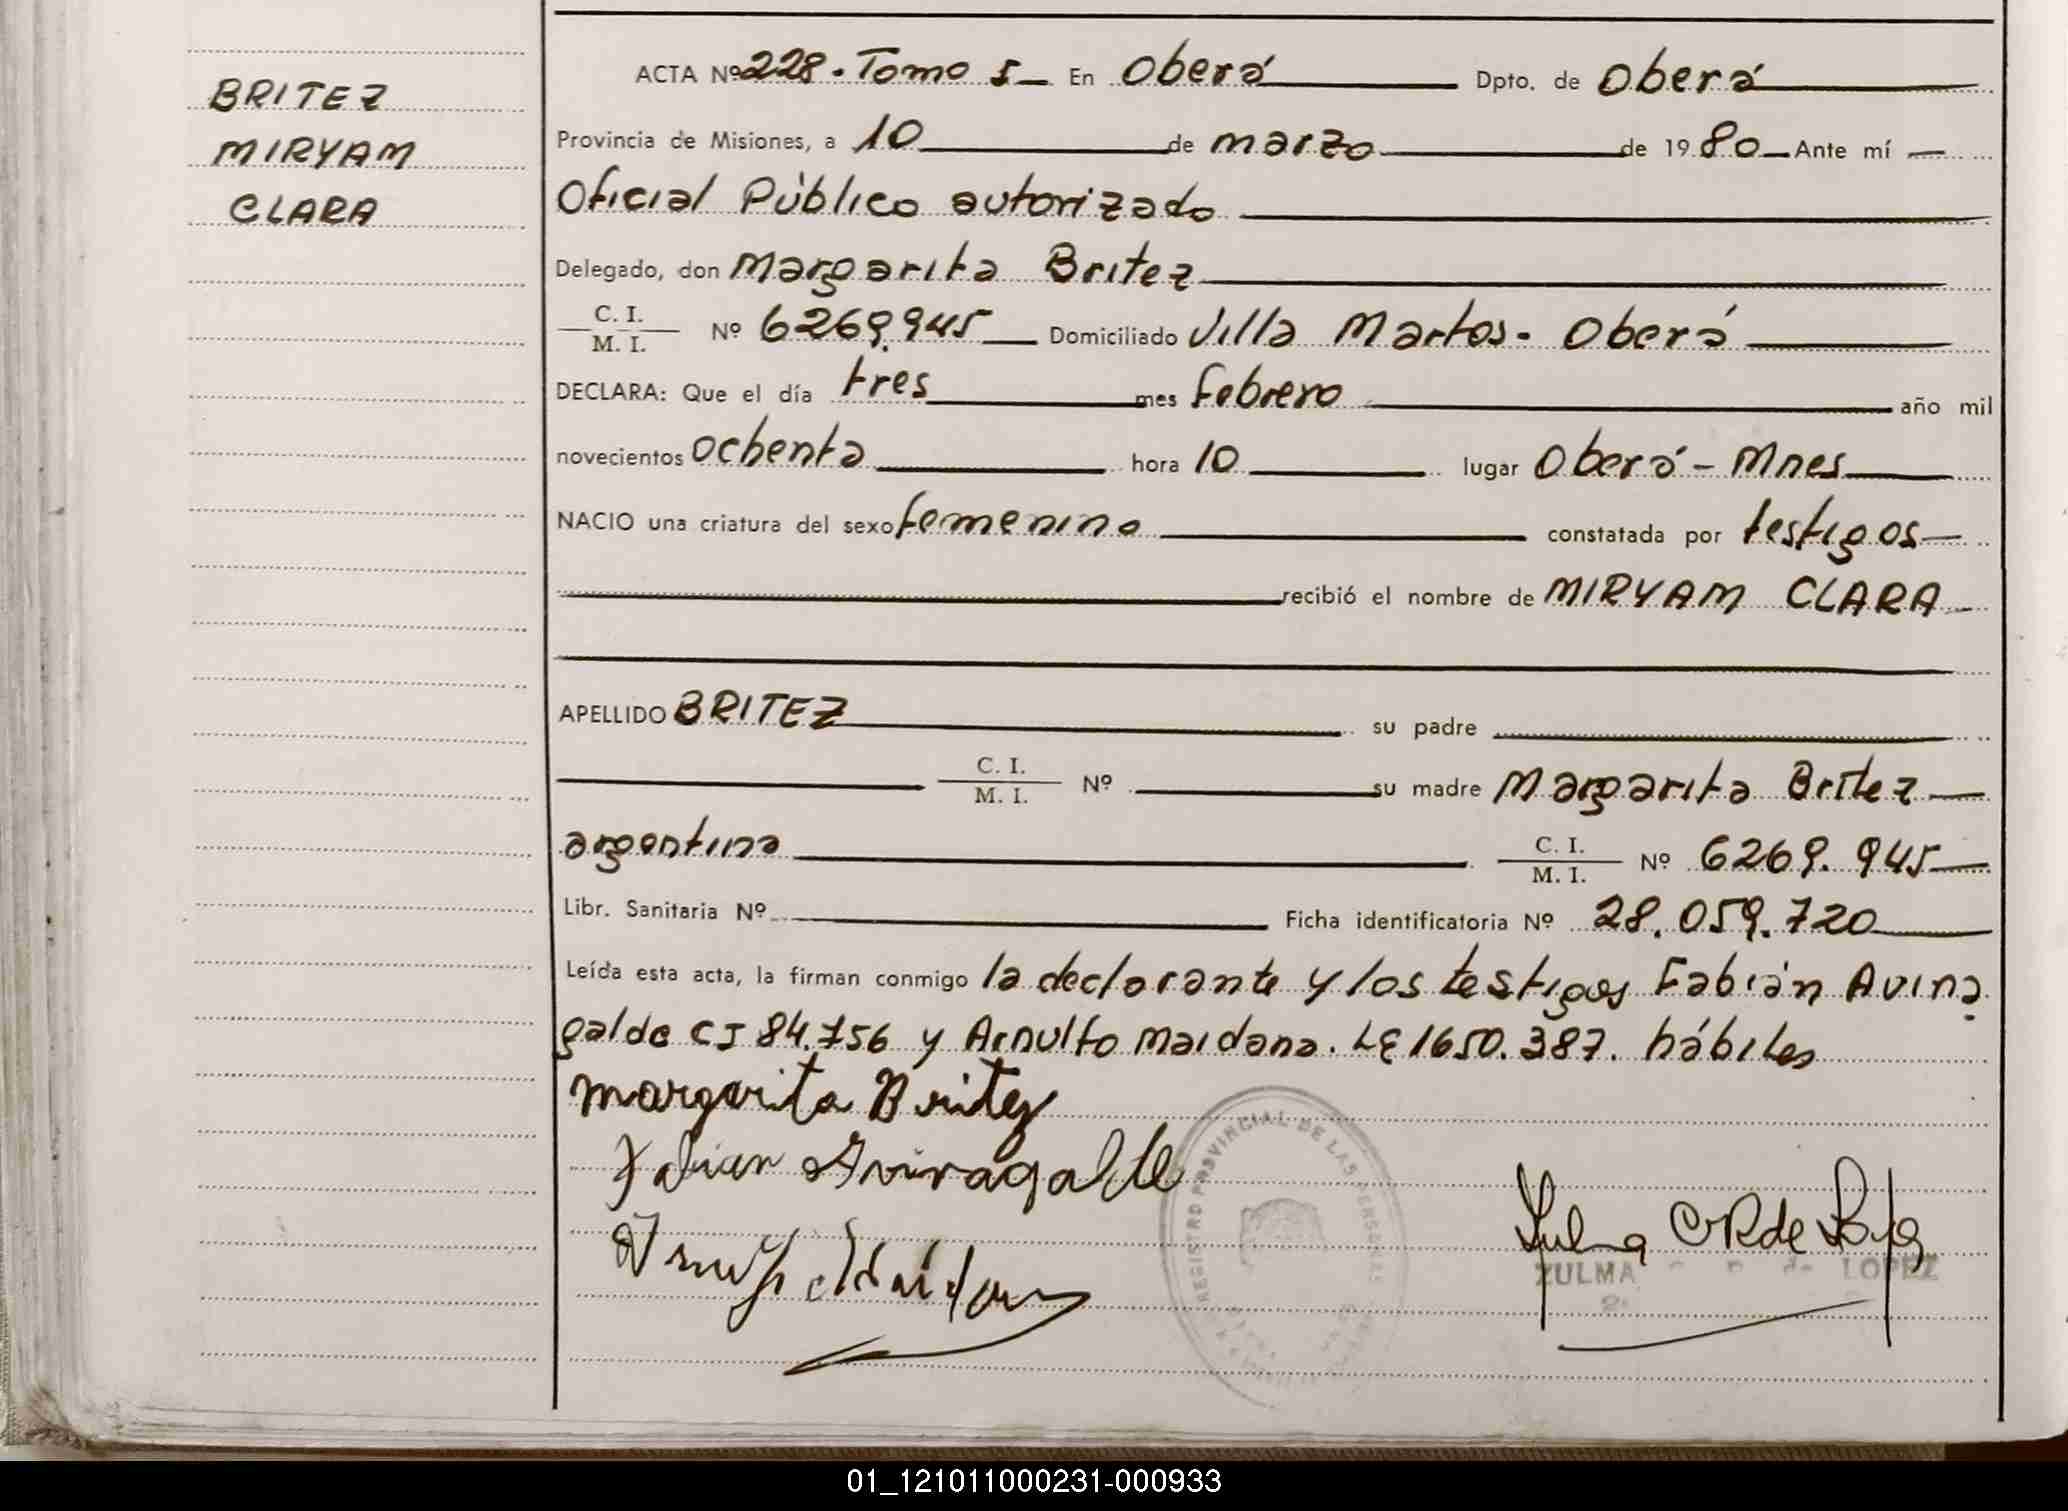 BRITEZ
MIRYAM
CLARA
ACTA Nº 228. Tomo 5 En Oberá Dpto. de Oberá
Provincia de Misiones, a 10 de marzo de 1980 Ante mí
Oficial Público autorizado
Delegado, don Margarita Britez
C. I.
M. I. Nº 6269.945 Domiciliado Villa Martos. Oberá
DECLARA: Que el día tres mes Febrero año mil
novecientos ochenta hora 10 lugar Oberá - Mnes
NACIO una criatura del sexo femenino constatada por testigos
recibió el nombre de MIRYAM CLARA
APELLIDO BRITEZ su padre
C. I.
M. I. Nº su madre Margarita Britez
argentina C. I.
M. I. Nº 6269.945
Libr. Sanitaria Nº Ficha identificatoria Nº 28.059.720
Leída esta acta, la firman conmigo la declarante y los testigos Fabián Avina
galde CI 84.756 y Arnulfo Maidana. LE 1650.387. hábiles
Margarita Britez
Fabian Avinagalde
REGISTRO PROVINCIAL DE LAS PERSONAS
ZULMA LOPEZ
01_121011000231-000933